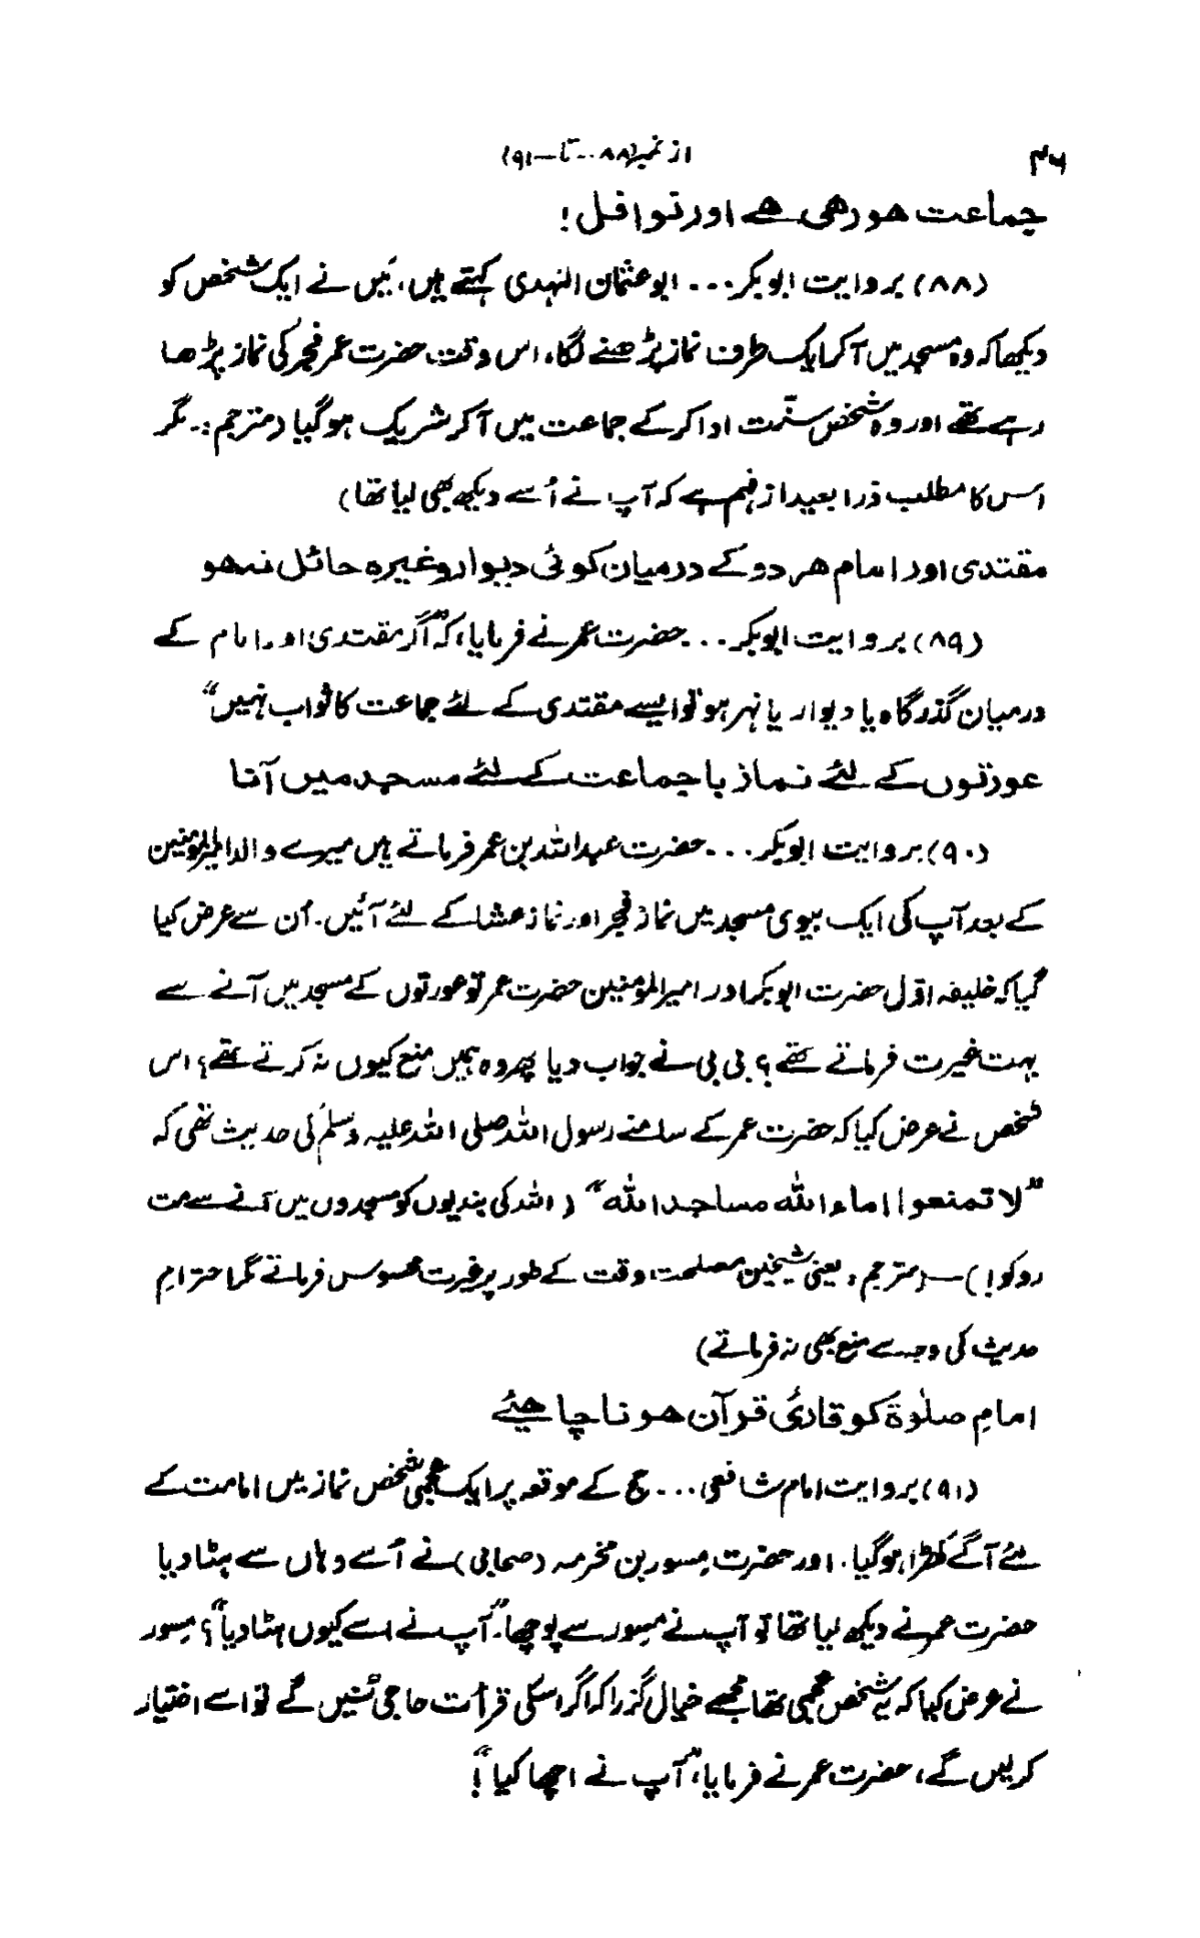 ۴۶ از نمبر(۸۸۔۔تا۔۹۱)
جماعت ھورھی ھے اور نوافل!
(۸۸) بروایت ابوبکر... ابوعثمان النہدی کہتے ہیں، میں نے ایک شخص کو
دیکھا کہ وہ مسجد میں آکر ایک طرف نماز پڑھنے لگا، اس وقت حضرت عمر فجر کی نماز پڑھا
رہے تھے اور وہ شخص سنّت ادا کر کے جماعت میں آکر شریک ہوگیا (مترجم:۔ مگر
اس کا مطلب ذرا بعید از فہم ہے کہ آپ نے اُسے دیکھ بھی لیا تھا)
مقتدی اور امام ھردو کے درمیان کوئی دیوار وغیرہ حائل نہ ھو
(۸۹) بروایت ابوبکر... حضرت عمر نے فرمایا، کہ "اگر مقتدی اور امام کے
درمیان گذرگاہ یا دیوار یا نہر ہو تو ایسے مقتدی کے لئے جماعت کا ثواب نہیں"
عورتوں کے لئے نماز باجماعت کے لئے مسجد میں آنا
(۹۰) بروایت ابوبکر... حضرت عبداللہ بن عمر فرماتے ہیں میرے والد امیرالمؤمنین
کے بعد آپ کی ایک بیوی مسجد میں نماز فجر اور نماز عشا کے لئے آئیں۔ اُن سے عرض کیا
گیا کہ خلیفہ اوّل حضرت ابوبکر اور امیرالمؤمنین حضرت عمر تو عورتوں کے مسجد میں آنے سے
بہت غیرت فرماتے تھے؟ بی بی نے جواب دیا پھر وہ ہمیں منع کیوں نہ کرتے تھے؟ اس
شخص نے عرض کیا کہ حضرت عمر کے سامنے رسول اللہ صلی اللہ علیہ وسلم کی حدیث تھی کہ
"لا تمنعوا اماء اللہ مساجد اللہ" (اللہ کی بندیوں کو مسجدوں میں آنے سے مت
روکو!)—(مترجم: یعنی شیخین مصلحت وقت کے طور پر غیرت محسوس فرماتے مگر احترامِ
حدیث کی وجہ سے منع بھی نہ فرماتے)
امامِ صلوٰۃ کو قاریٔ قرآن ھونا چاھئے
(۹۱) بروایت امام شافعی... حج کے موقعہ پر ایک عجمی شخص نماز میں امامت کے
لئے آگے کھڑا ہوگیا۔ اور حضرت مِسور بن مخرمہ (صحابی) نے اُسے وہاں سے ہٹا دیا
حضرت عمر نے دیکھ لیا تھا تو آپ نے مِسور سے پوچھا۔ "آپ نے اسے کیوں ہٹا دیا"؟ مِسور
نے عرض کیا کہ یہ شخص عجمی تھا مجھے خیال گزرا کہ اگر اسکی قرأت حاجی سُنیں گے تو اسے اختیار
کرلیں گے، حضرت عمر نے فرمایا، "آپ نے اچھا کیا"!